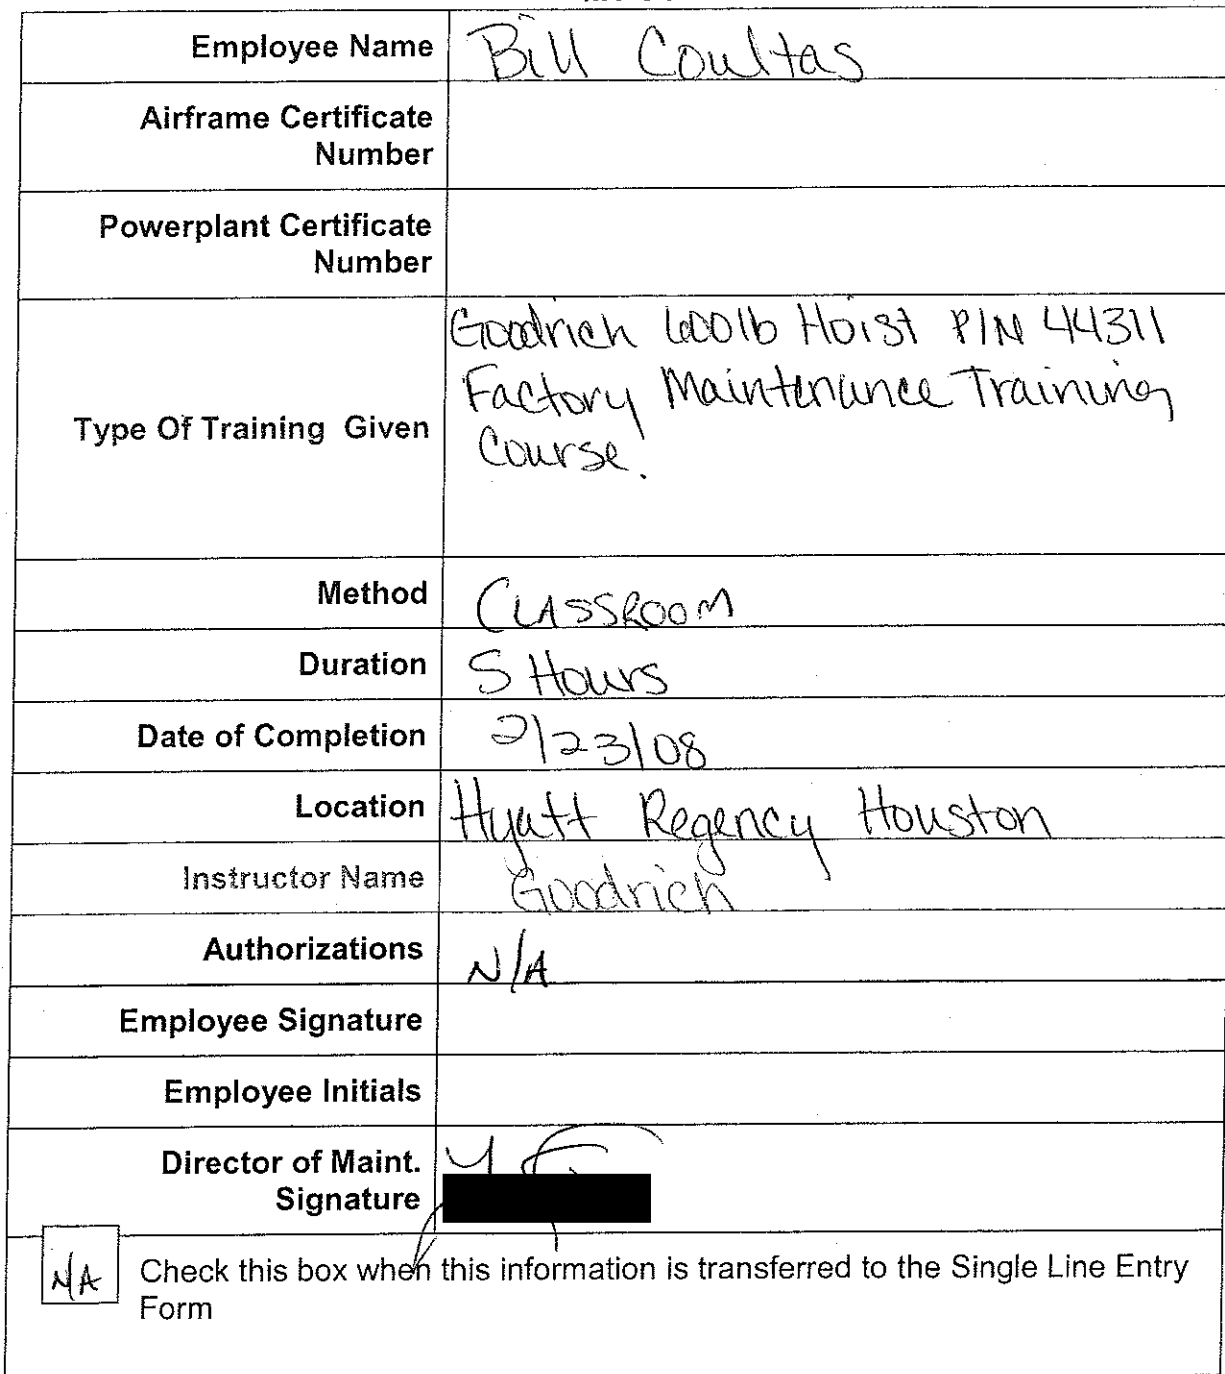 Employee Name Bill Coultas
Airframe Certificate
Number
Powerplant Certificate
Number
Goodrich 600lb Hoist P/N 44311
Factory Maintenance Training
Type Of Training Given
Course.
Method Classroom
Duration 5 Hours
Date of Completion 2/23/08
Location Hyatt Regency Houston
Instructor Name Goodrich
Authorizations N/A
Employee Signature
Employee Initials
Director of Maint.
Signature
N/A Check this box when this information is transferred to the Single Line Entry
Form